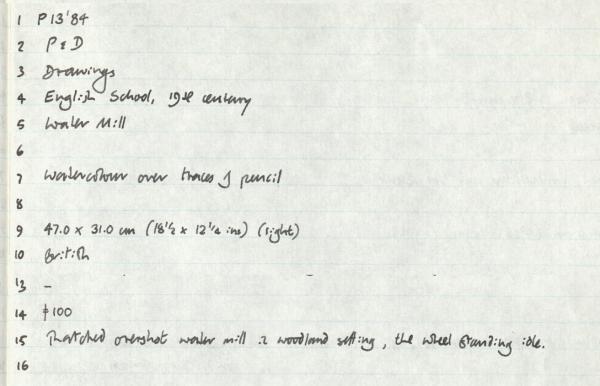 1 P13'84
2 P & D
3 Drawings
4 English School, 19th century
5 Water Mill
6
7 Watercolour over traces of pencil
8
9 47.0 x 31.0 cm (18½ x 12¼ ins) (sight)
10 British
13 –
14 100
15 Thatched overshot water mill in woodland setting, the wheel standing idle.
16